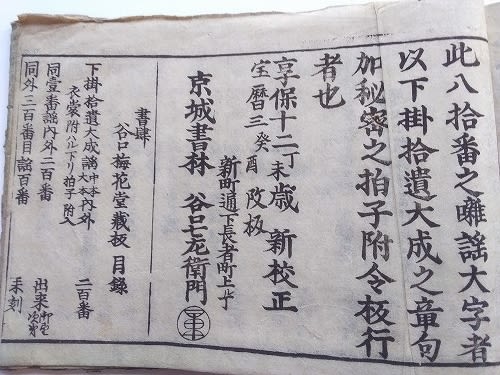 此八拾番之囃謡大字者
以下掛拾遺大成之章句
加秘密之拍子附令板行
者也
享保十二丁未歳 新校正
宝暦三癸酉 改板
新町通下長者町上ル丁
京城書林 谷口七左衛門
書肆 谷口梅花堂蔵板目録
下掛拾遺大成謡 中本 大本 内外 二百番
衣裳附ハル下リ拍子附入
同壹番謡内外二百番 出来
同外三百番目謡百番 未刻